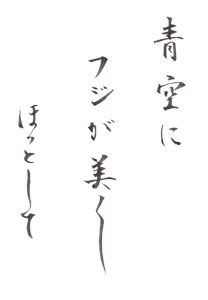 青空に
フジが美し
ほっとして